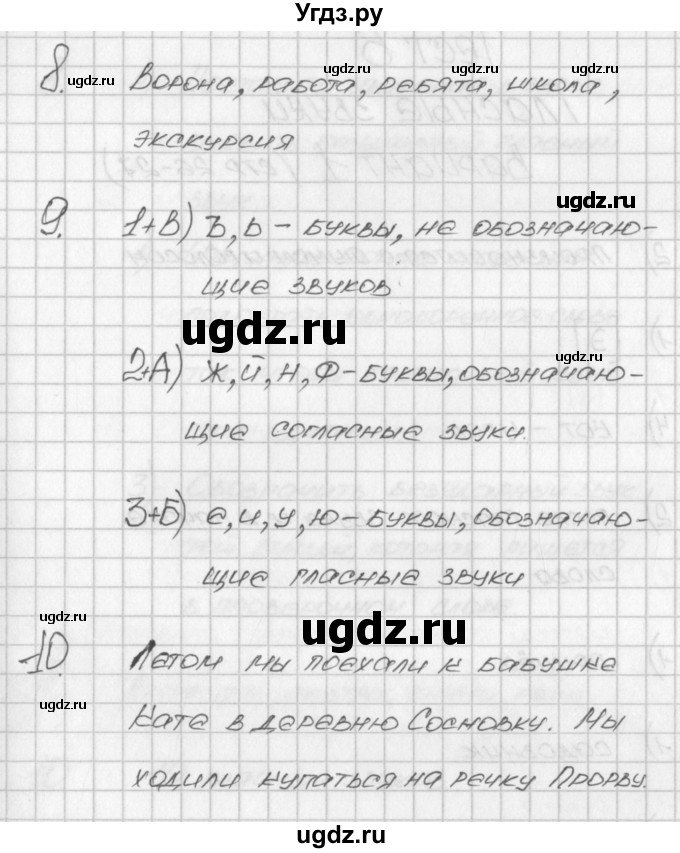 Угдз.ру
ugdz.ru ugdz.ru ugdz.ru ugdz.ru
8. Ворона, работа, ребята, школа,
экскурсия
ugdz.ru
9. 1+В) Ъ, ь – буквы, не обозначаю-
ugdz.ru
щие звуков
ugdz.ru
ugdz.ru
2+А) Ж, й, н, ф – буквы, обозначаю-
щие согласные звуки.
ugdz.ru
3+Б) е, и, у, ю – буквы, обозначаю-
щие гласные звуки
ugdz.ru
ugdz.ru
10. Летом мы поехали к бабушке
ugdz.ru
Кате в деревню Сосновку. Мы
ходили купаться на речку Прорву.
ugdz.ru